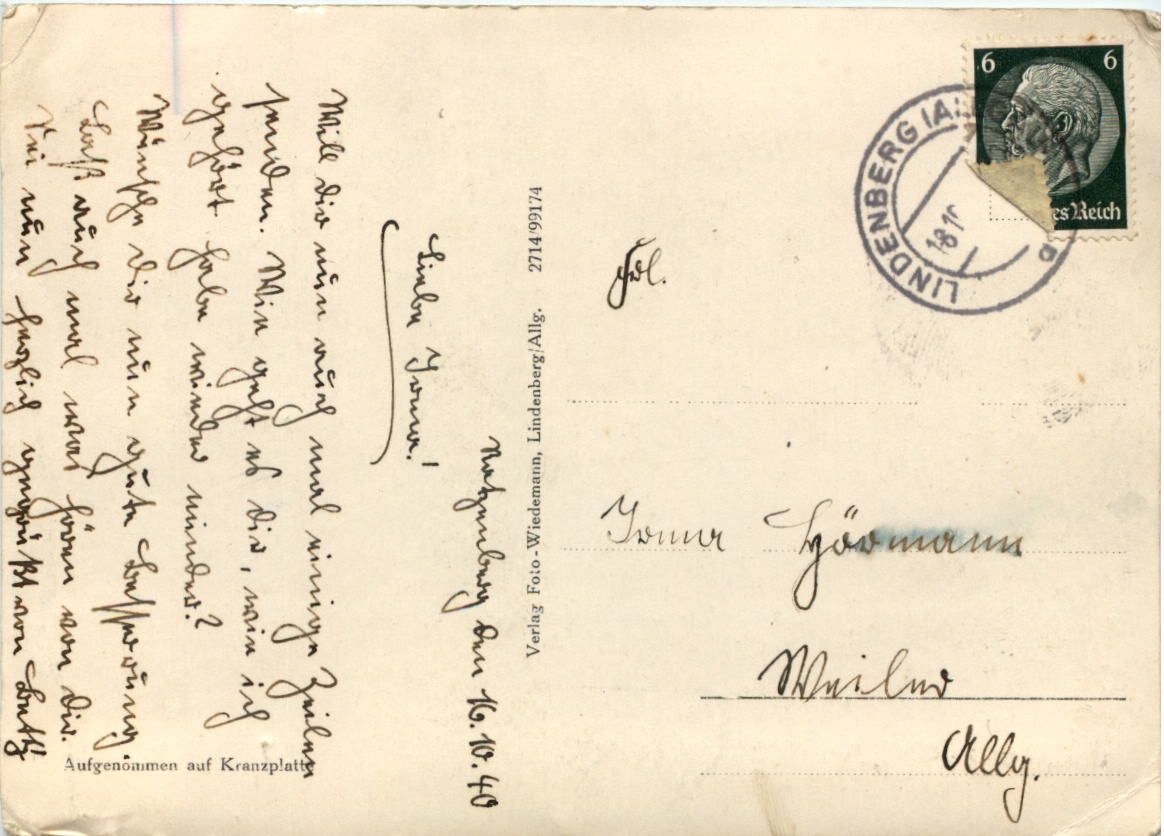 Ratzenberg den 16.10.40
Liebe Irma!
Will dir nun auch mal einige Zeilen
senden. Wie geht es dir, wie ich
gehört habe wieder minder?
Wünsche dir nun gute Besserung
Laß auch mal was hören von dir.
Sei nun herzlich gegrüßt von Betty
Aufgenommen auf Kranzplatte
Verlag Foto-Wiedemann, Lindenberg/Allg. 2714/99174
6 6
es Reich
LINDENBERG (A
18.10
Frl.
Irma Hörmann
Weiler
Allg.